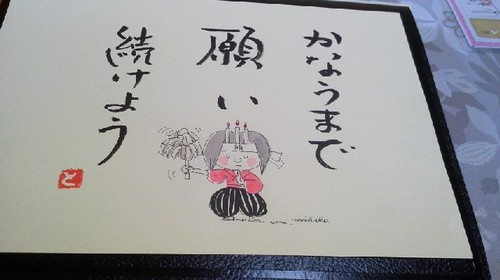 かなうまで
願い
続けよう
と